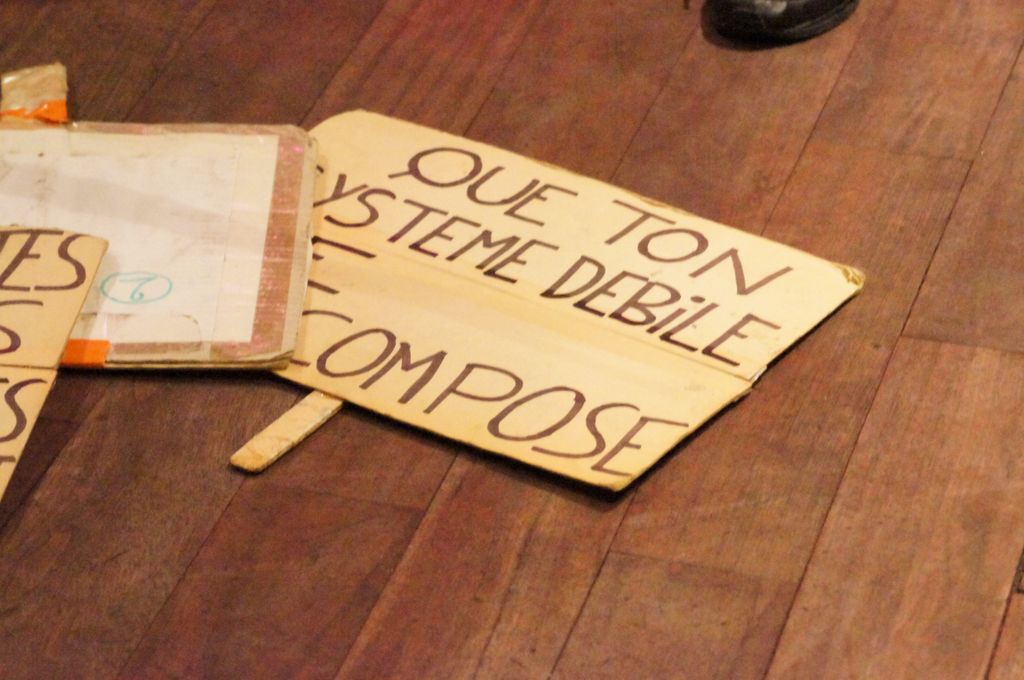 QUE TON
SYSTEME DEBILE
COMPOSE
ES
S
S
2